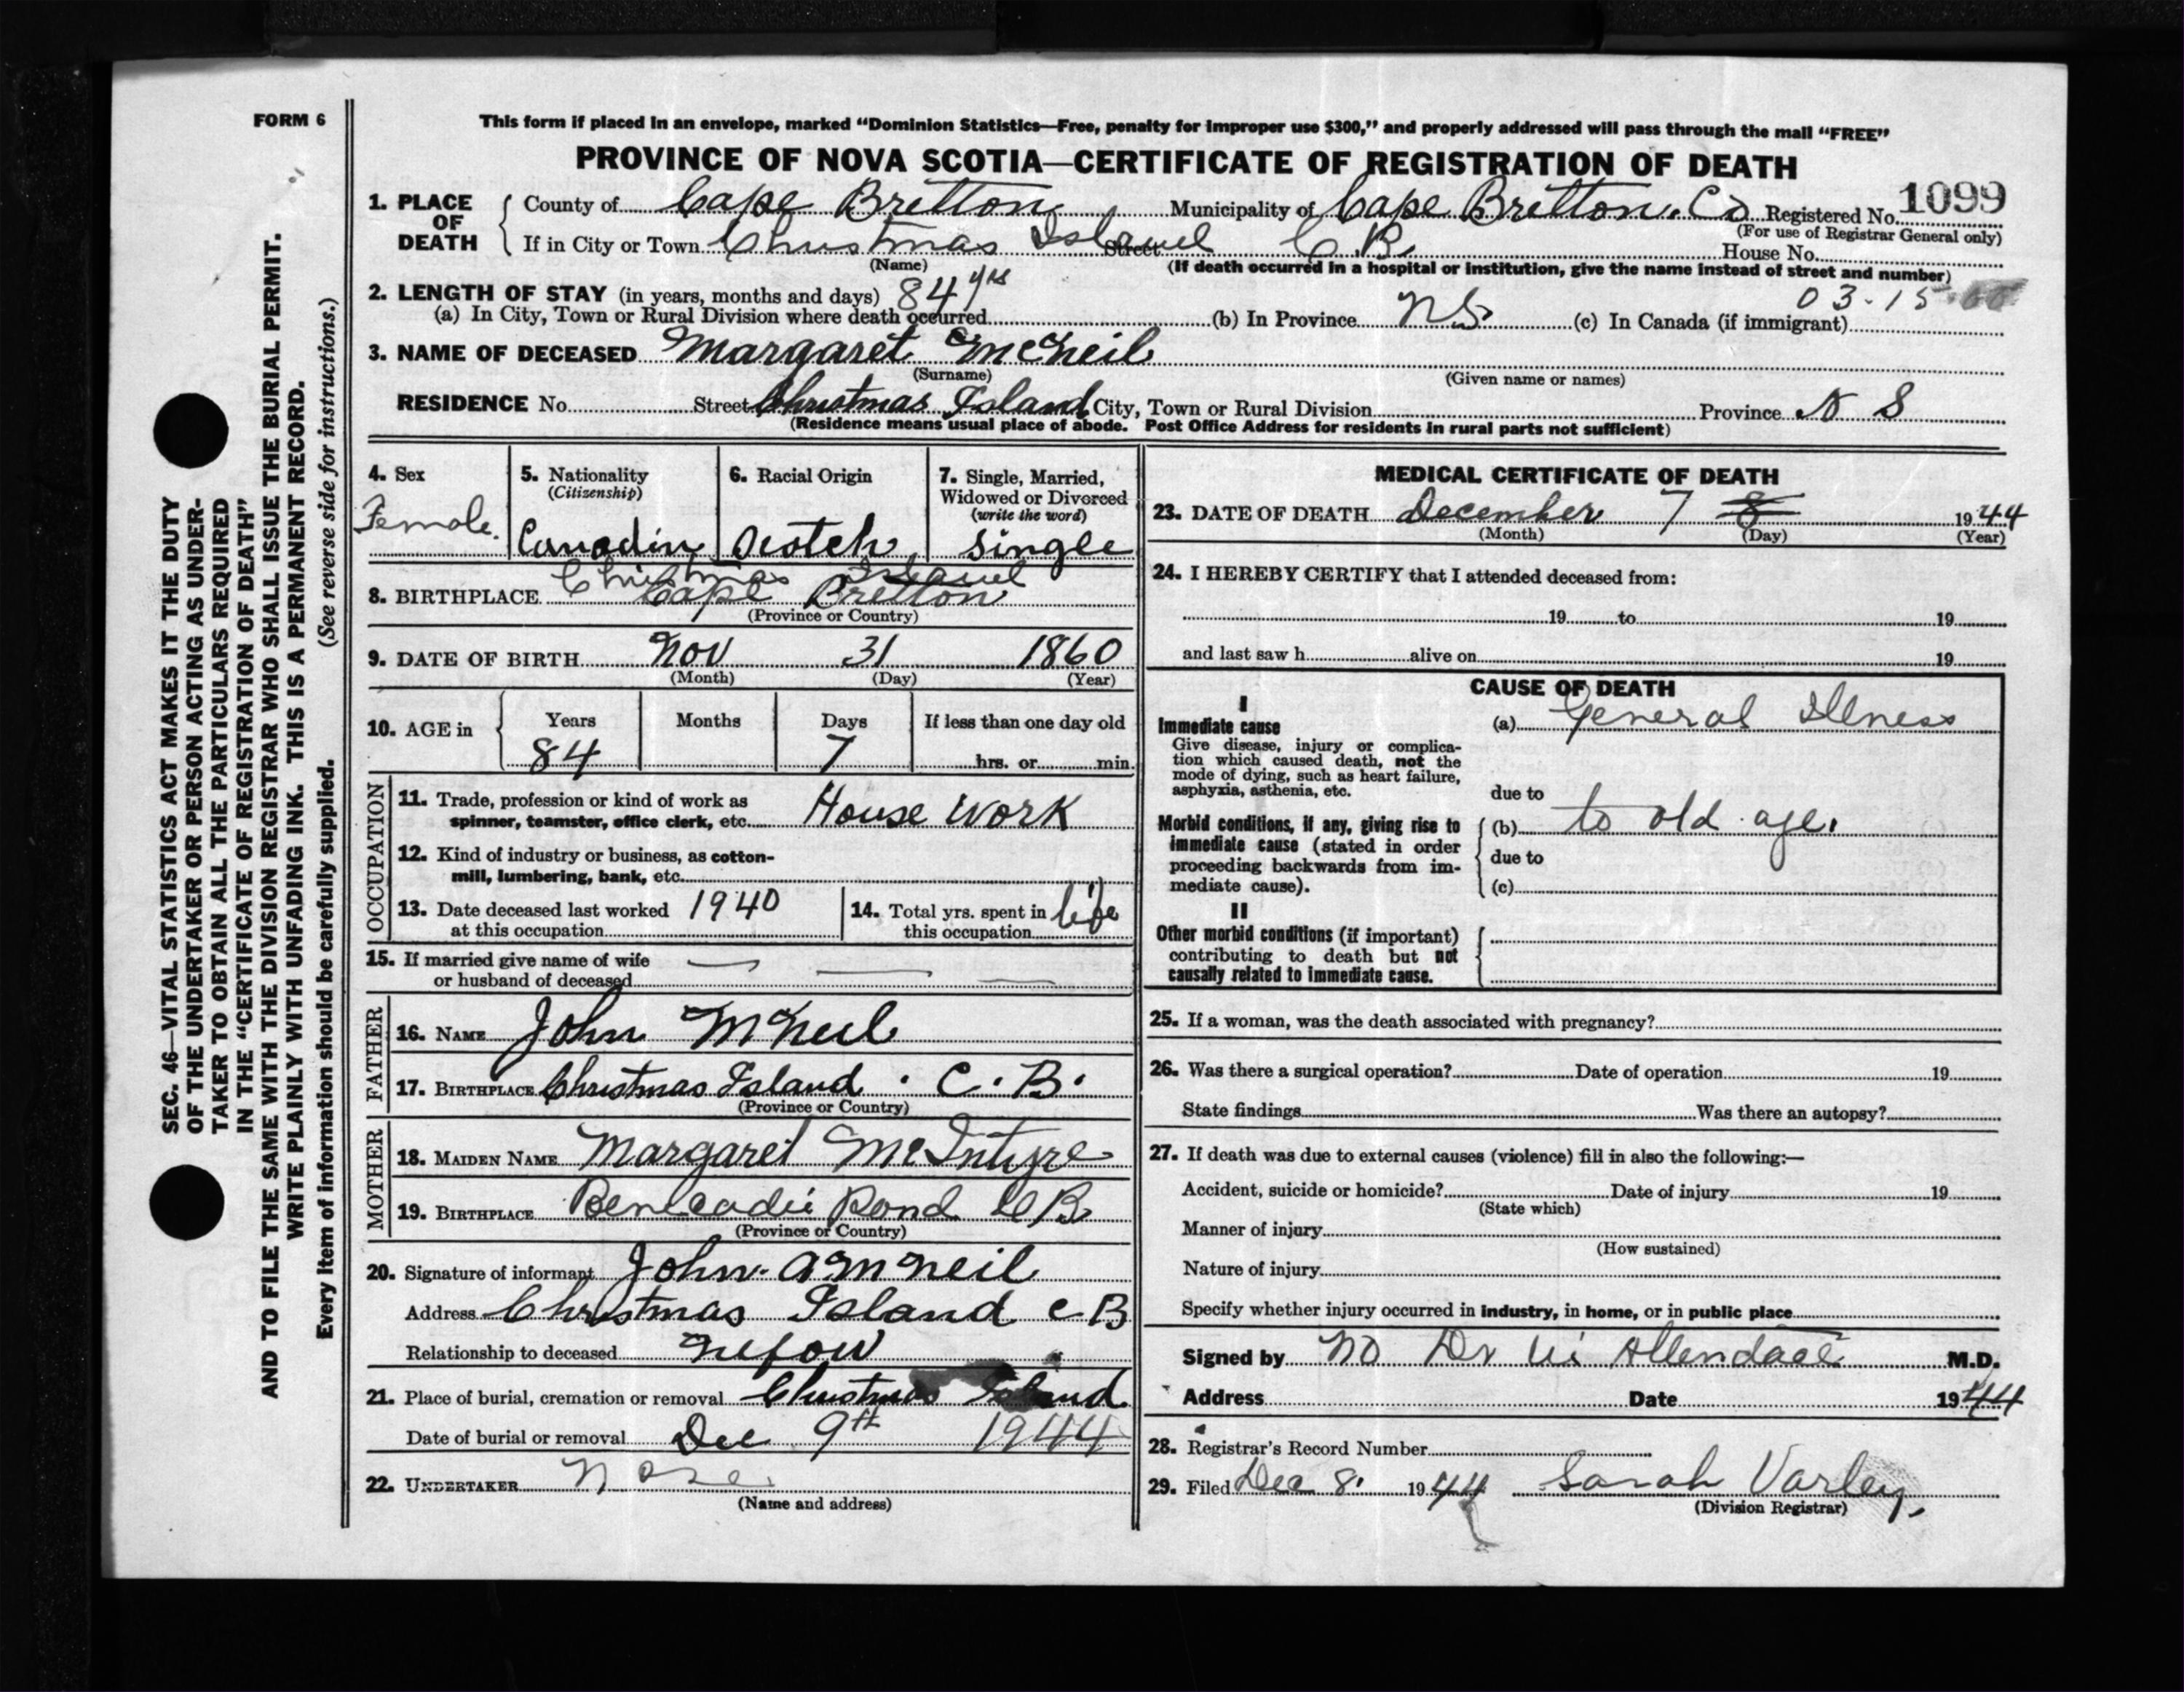 FORM 6
This form if placed in an envelope, marked “Dominion Statistics—Free, penalty for improper use $300,” and properly addressed will pass through the mail “FREE”
PROVINCE OF NOVA SCOTIA—CERTIFICATE OF REGISTRATION OF DEATH
1. PLACE OF DEATH
County of Cape Bretton Municipality of Cape Bretton. Co Registered No. 1099
(For use of Registrar General only)
If in City or Town Christmas Island Street C.B. House No.
(Name) (If death occurred in a hospital or institution, give the name instead of street and number)
2. LENGTH OF STAY (in years, months and days) 84 yrs 03-15
(a) In City, Town or Rural Division where death occurred (b) In Province N.S. (c) In Canada (if immigrant)
3. NAME OF DECEASED Margaret McNeil
(Surname) (Given name or names)
RESIDENCE No. Street Christmas Island City, Town or Rural Division Province N S
(Residence means usual place of abode. Post Office Address for residents in rural parts not sufficient)
4. Sex
Female.
5. Nationality
(Citizenship)
Canadin
6. Racial Origin
Scotch
7. Single, Married,
Widowed or Divorced
(write the word)
Single
Christmas Island
8. BIRTHPLACE Cape Bretton
(Province or Country)
9. DATE OF BIRTH Nov 31 1860
(Month) (Day) (Year)
10. AGE in
Years Months Days If less than one day old
84 7 hrs. or min.
OCCUPATION
11. Trade, profession or kind of work as
spinner, teamster, office clerk, etc. House Work
12. Kind of industry or business, as cotton-
mill, lumbering, bank, etc.
13. Date deceased last worked 1940
at this occupation
14. Total yrs. spent in life
this occupation
15. If married give name of wife
or husband of deceased
FATHER
16. NAME John McNeil
17. BIRTHPLACE Christmas Island . C. B.
(Province or Country)
MOTHER
18. MAIDEN NAME Margaret McIntyre
19. BIRTHPLACE Beneacadie Pond C B
(Province or Country)
20. Signature of informant John. A McNeil
Address Christmas Island C B
Relationship to deceased Nefow
21. Place of burial, cremation or removal Christmas Island
Date of burial or removal Dec 9th 1944
22. UNDERTAKER None.
(Name and address)
MEDICAL CERTIFICATE OF DEATH
23. DATE OF DEATH December 7 8 1944
(Month) (Day) (Year)
24. I HEREBY CERTIFY that I attended deceased from:
19 to 19
and last saw h alive on 19
CAUSE OF DEATH
I
Immediate cause
Give disease, injury or complica-
tion which caused death, not the
mode of dying, such as heart failure,
asphyxia, asthenia, etc.
(a) General Illness
due to
Morbid conditions, if any, giving rise to
immediate cause (stated in order
proceeding backwards from im-
mediate cause).
(b) to old age.
due to
(c)
II
Other morbid conditions (if important)
contributing to death but not
causally related to immediate cause.
25. If a woman, was the death associated with pregnancy?
26. Was there a surgical operation? Date of operation 19
State findings Was there an autopsy?
27. If death was due to external causes (violence) fill in also the following:—
Accident, suicide or homicide? Date of injury 19
(State which)
Manner of injury
(How sustained)
Nature of injury
Specify whether injury occurred in industry, in home, or in public place
Signed by No Dr in M.D.
Address Date 1944
28. Registrar's Record Number
29. Filed Dec 8. 1944 Sarah Varley.
(Division Registrar)
SEC. 46—VITAL STATISTICS ACT MAKES IT THE DUTY
OF THE UNDERTAKER OR PERSON ACTING AS UNDER-
TAKER TO OBTAIN ALL THE PARTICULARS REQUIRED
IN THE “CERTIFICATE OF REGISTRATION OF DEATH”
AND TO FILE THE SAME WITH THE DIVISION REGISTRAR WHO SHALL ISSUE THE BURIAL PERMIT.
WRITE PLAINLY WITH UNFADING INK. THIS IS A PERMANENT RECORD.
Every item of information should be carefully supplied. (See reverse side for instructions.)